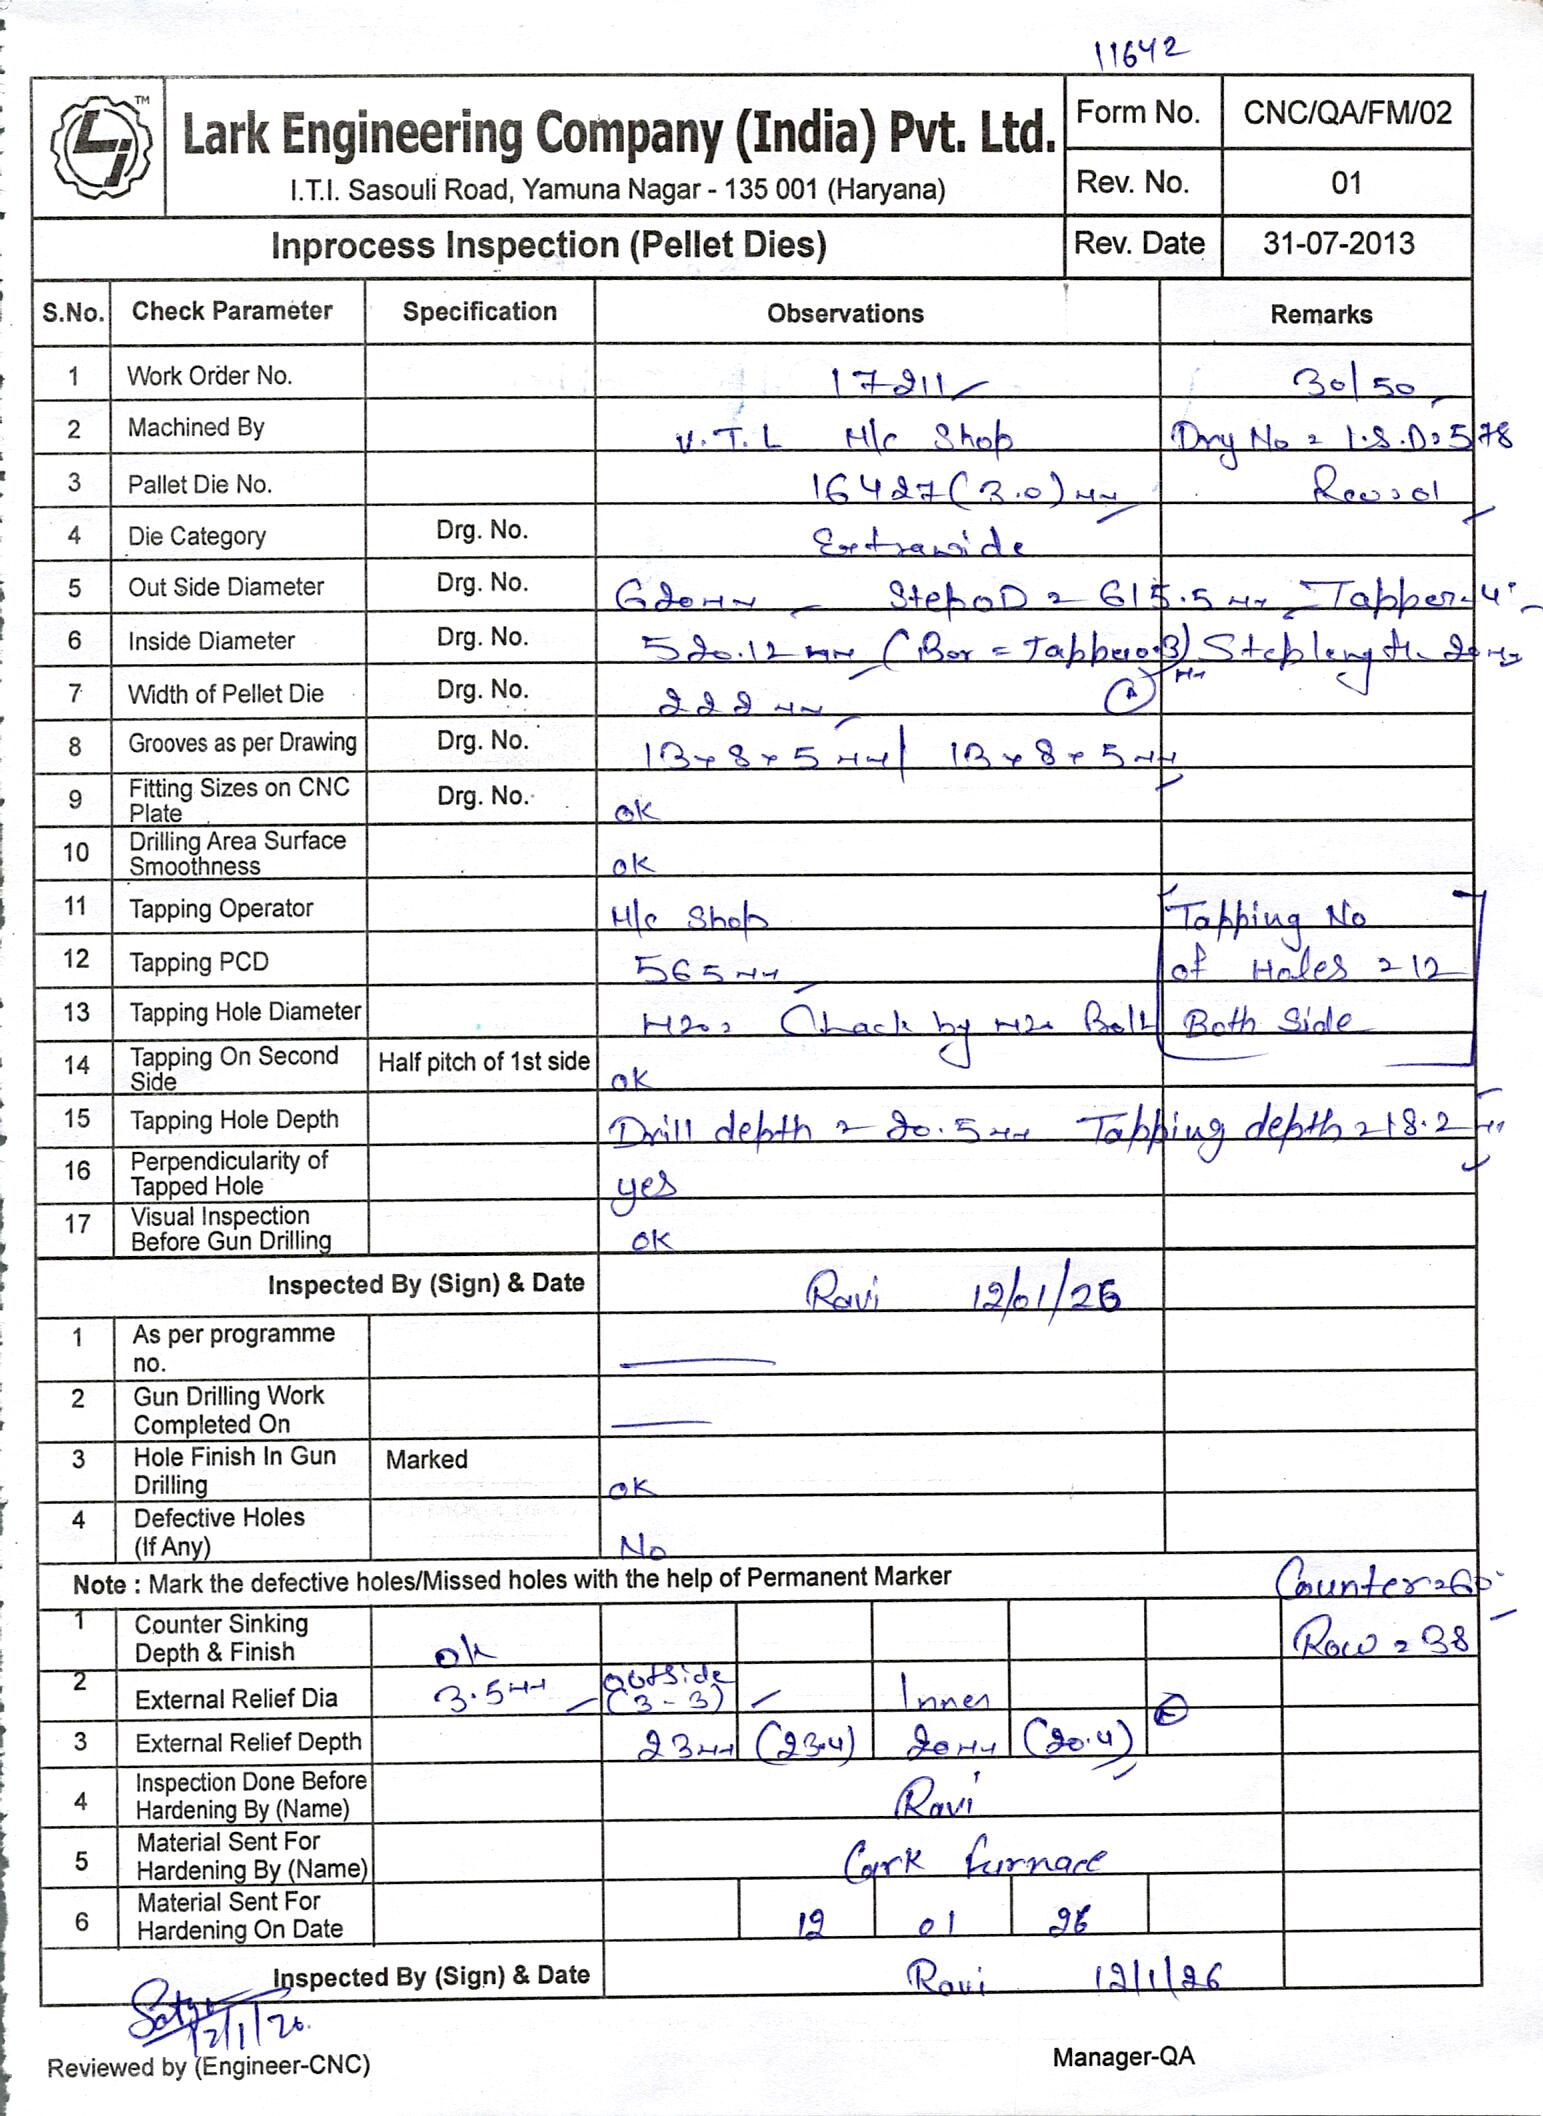 11642
TM
Lark Engineering Company (India) Pvt. Ltd.
I.T.I. Sasouli Road, Yamuna Nagar - 135 001 (Haryana)
Form No. CNC/QA/FM/02
Rev. No. 01
Inprocess Inspection (Pellet Dies) Rev. Date 31-07-2013
S.No. Check Parameter Specification Observations Remarks
1 Work Order No. 17211 30/50
2 Machined By V.T.L M/c Shop Dry No = I.S.D=578
3 Pallet Die No. 16427(3.0)mm Rev=01
4 Die Category Drg. No. Extrawide
5 Out Side Diameter Drg. No. 620mm StepOD = 615.5mm Tapper-4°
6 Inside Diameter Drg. No. 520.12mm (Bor = Tapper0.3)mm Step length 20mm
7 Width of Pellet Die Drg. No. 222mm A
8 Grooves as per Drawing Drg. No. 13x8x5mm/ 13x8x5mm
9 Fitting Sizes on CNC Plate Drg. No. ok
10 Drilling Area Surface Smoothness ok
11 Tapping Operator M/c Shop Tapping No
12 Tapping PCD 565mm of Holes = 12
13 Tapping Hole Diameter M20= Chack by M20 Bolt Both Side
14 Tapping On Second Side Half pitch of 1st side ok
15 Tapping Hole Depth Drill depth = 20.5mm Tapping depth = 18.2mm
16 Perpendicularity of Tapped Hole yes
17 Visual Inspection Before Gun Drilling ok
Inspected By (Sign) & Date Ravi 12/01/26
1 As per programme no.
2 Gun Drilling Work Completed On
3 Hole Finish In Gun Drilling Marked ok
4 Defective Holes (If Any) No
Note : Mark the defective holes/Missed holes with the help of Permanent Marker Counter=60°
1 Counter Sinking Depth & Finish ok Row = 38
2 External Relief Dia 3.5mm outside (3-3) Inner
3 External Relief Depth 23mm (23.4) 20mm (20.4)
4 Inspection Done Before Hardening By (Name) Ravi
5 Material Sent For Hardening By (Name) Lark furnace
6 Material Sent For Hardening On Date 12 01 26
Inspected By (Sign) & Date Ravi 12/1/26
12/1/26.
Reviewed by (Engineer-CNC) Manager-QA